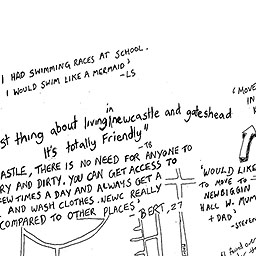 I HAD SWIMMING RACES AT SCHOOL.
I WOULD SWIM LIKE A MERMAID'
-LS
in
st thing about living/newcastle and gateshead
It's totally Friendly"
-TB
ASTLE, THERE IS NO NEED FOR ANYONE TO
RY AND DIRTY. YOU CAN GET ACCESS TO
FEW TIMES A DAY AND ALWAYS GET A
AND WASH CLOTHES. NEWC REALLY
COMPARED TO OTHER PLACES'.
BERT, 27
'MOVE
IN
'WOULD LIKE
TO MOVE TO
NEWBIGGIN
HALL W. MUM
+ DAD'